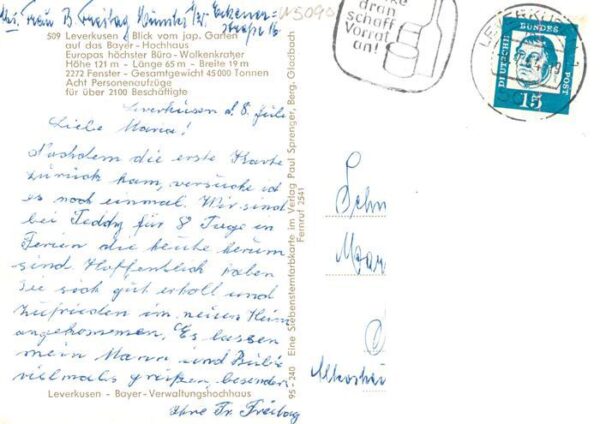 Frau B. Freitag
509 Leverkusen Blick vom jap. Garten
auf das Bayer - Hochhaus
Europas höchster Büro - Wolkenkratzer
Höhe 121 m - Länge 65 m - Breite 19 m
2272 Fenster - Gesamtgewicht 45 000 Tonnen
Acht Personenaufzüge
für über 2100 Beschäftigte
Leverkusen d. 8. Juli
Liebe Mana!
Nachdem die erste Karte
zurück kam, versuche ich
es noch einmal. Wir sind
bei Teddy für 8 Tage in
Ferien die heute herum
sind. Hoffentlich haben
Sie sich gut erholt und
zufrieden im neuen Heim
angekommen. Es lassen
mein Mann und
vielmals grüßen, besonders
Leverkusen - Bayer-Verwaltungshochhaus
Ihre Fr. Freitag
95 - 240 Eine Siebensternfarbkarte im Verlag Paul Sprenger, Berg. Gladbach
Fernruf 2541
dran
schaff
Vorrat
an!
LEVERKUS
DEUTSCHE
BUNDES
POST
15